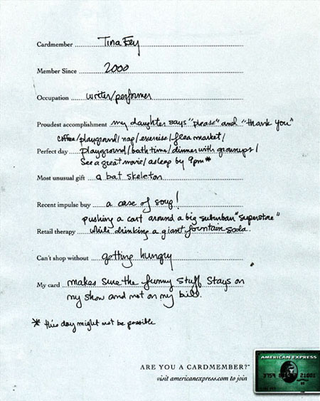 Cardmember Tina Fey
Member Since 2000
Occupation writer/performer
Proudest accomplishment my daughter says "please" and "thank you"
coffee/playground/nap/exercise/flea market/
Perfect day playground/bath time/dinner with grownups/
see a great movie/asleep by 9pm*
Most unusual gift a bat skeleton
Recent impulse buy a case of soup!
pushing a cart around a big suburban "superstore"
Retail therapy while drinking a giant fountain soda.
Can't shop without getting hungry
My card makes sure the funny stuff stays on
my show and not on my bill.
* this day might not be possible
ARE YOU A CARDMEMBER?
visit americanexpress.com to join
AMERICAN EXPRESS